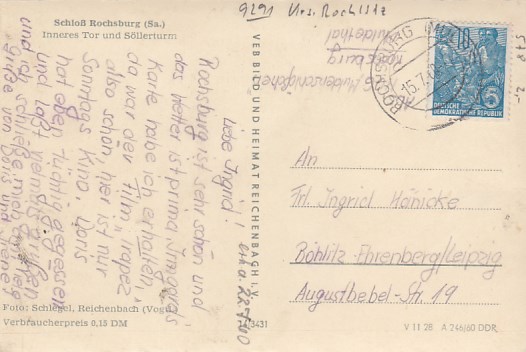 9291 Krs. Rochlitz
Schloß Rochsburg (Sa.)
Inneres Tor und Söllerturm
Rochsburg
Muldental
ROCHSBURG (MULDENTAL)
15.7.60
10
DEUTSCHE
DEMOKRATISCHE REPUBLIK
5
Liebe Ingrid!
Rochsburg ist sehr schön und
das Wetter ist prima. Ingrids
Karte habe ich erhalten,
da war der Film "Trapez"
also schon hier ist nur
Sonntags Kino. Doris
hat eben tüchtig gegessen
und läßt vielmals grüßen
und ich schließe mich an. Viele
Grüße von Doris und Irene
erh. d. 22.7.60
VEB BILD UND HEIMAT REICHENBACH I. V.
An
Frl. Ingrid Hänicke
Böhlitz-Ehrenberg/Leipzig
Augustbebel-Str. 19
Foto: Schlegel, Reichenbach (Vogtl.)
Verbraucherpreis 0,15 DM
14/3431
V 11 28 A 246/60 DDR